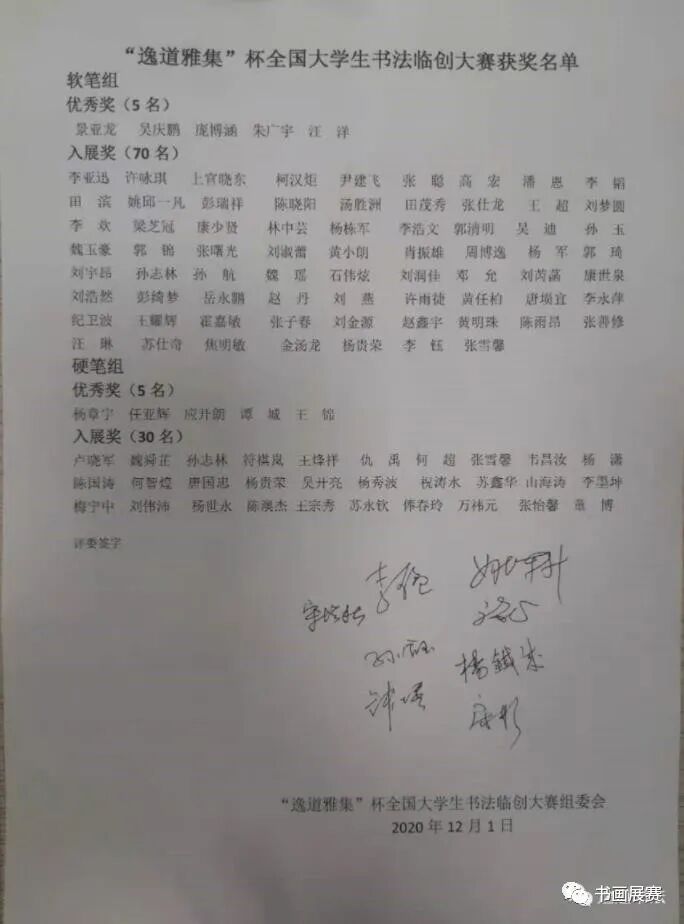 “逸道雅集”杯全国大学生书法临创大赛获奖名单
软笔组
优秀奖（5名）
景亚龙 吴庆鹏 庞博涵 朱广宇 汪洋
入展奖（70名）
李亚迅 许咏琪 上官晓东 柯汉炬 尹建飞 张聪 高宏 潘恩 李韬
田滨 姚邱一凡 彭瑞祥 陈晓阳 汤胜洲 田茂秀 张仕龙 王超 刘梦圆
李欢 梁芝冠 康少贤 林中芸 杨栋军 李浩文 郭清明 吴迪 孙玉
魏玉豪 郭锦 张曙光 刘淑蕾 黄小朗 肖振雄 周博逸 杨军 郭琦
刘宇昂 孙志林 孙航 魏瑶 石伟炫 刘润佳 邓允 刘芮菡 康世泉
刘浩然 彭绮梦 岳永鹏 赵丹 刘燕 许雨捷 黄任柏 唐埙宜 李永萍
纪卫波 王耀辉 霍嘉敏 张子春 刘金源 赵鑫宇 黄明珠 陈雨昂 张善修
汪琳 苏仕奇 焦明敏 金汤龙 杨贵荣 李钰 张雪馨
硬笔组
优秀奖（5名）
杨章宇 任亚辉 应开朗 谭城 王锦
入展奖（30名）
卢晓军 魏舜芷 孙志林 符棋岚 王烽祥 仇禹 何超 张雪馨 韦昌汝 杨潇
陈国涛 何智煌 唐国忠 杨贵荣 吴开亮 杨秀波 祝涛水 苏鑫华 山海涛 李墨坤
梅宁中 刘伟沛 杨世永 陈澳杰 王宗秀 苏水钦 俸春玲 万祎元 张怡馨 童博
评委签字
“逸道雅集”杯全国大学生书法临创大赛组委会
2020年12月1日
书画展赛